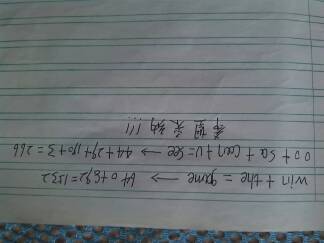 win + the = game → 640+692=1332
oo + sa + can + u = see → 44+29+190+3=266
希望采纳!!!